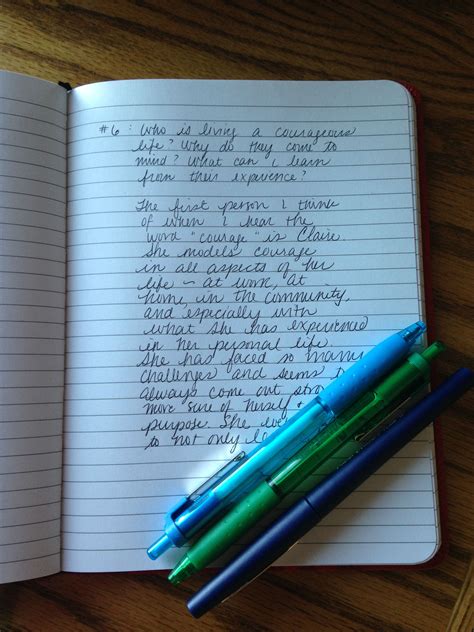 #6: Who is living a courageous
life? Why do they come to
mind? What can i learn
from their experience?
The first person i think
of when i hear the
word "courage" is Claire.
She models courage
in all aspects of her
life - at work, at
home, in the community,
and especially with
what she has experienced
in her personal life.
She has faced so many
challenges and seems
always come out
more sure of herself +
purpose. She
to not only